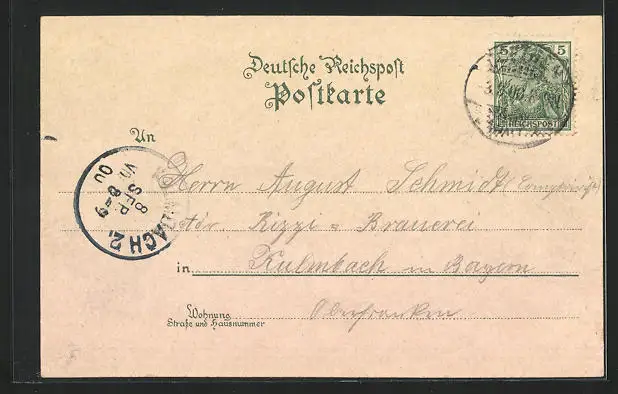 Deutsche Reichspost
Postkarte
5 5
REICHSPOST
An
Herrn August Schmidt
Rizzi = Brauerei
in Kulmbach in Bayern
Wohnung
Straße und Hausnummer
Oberfranken
BACH 2.
8 SEP
00